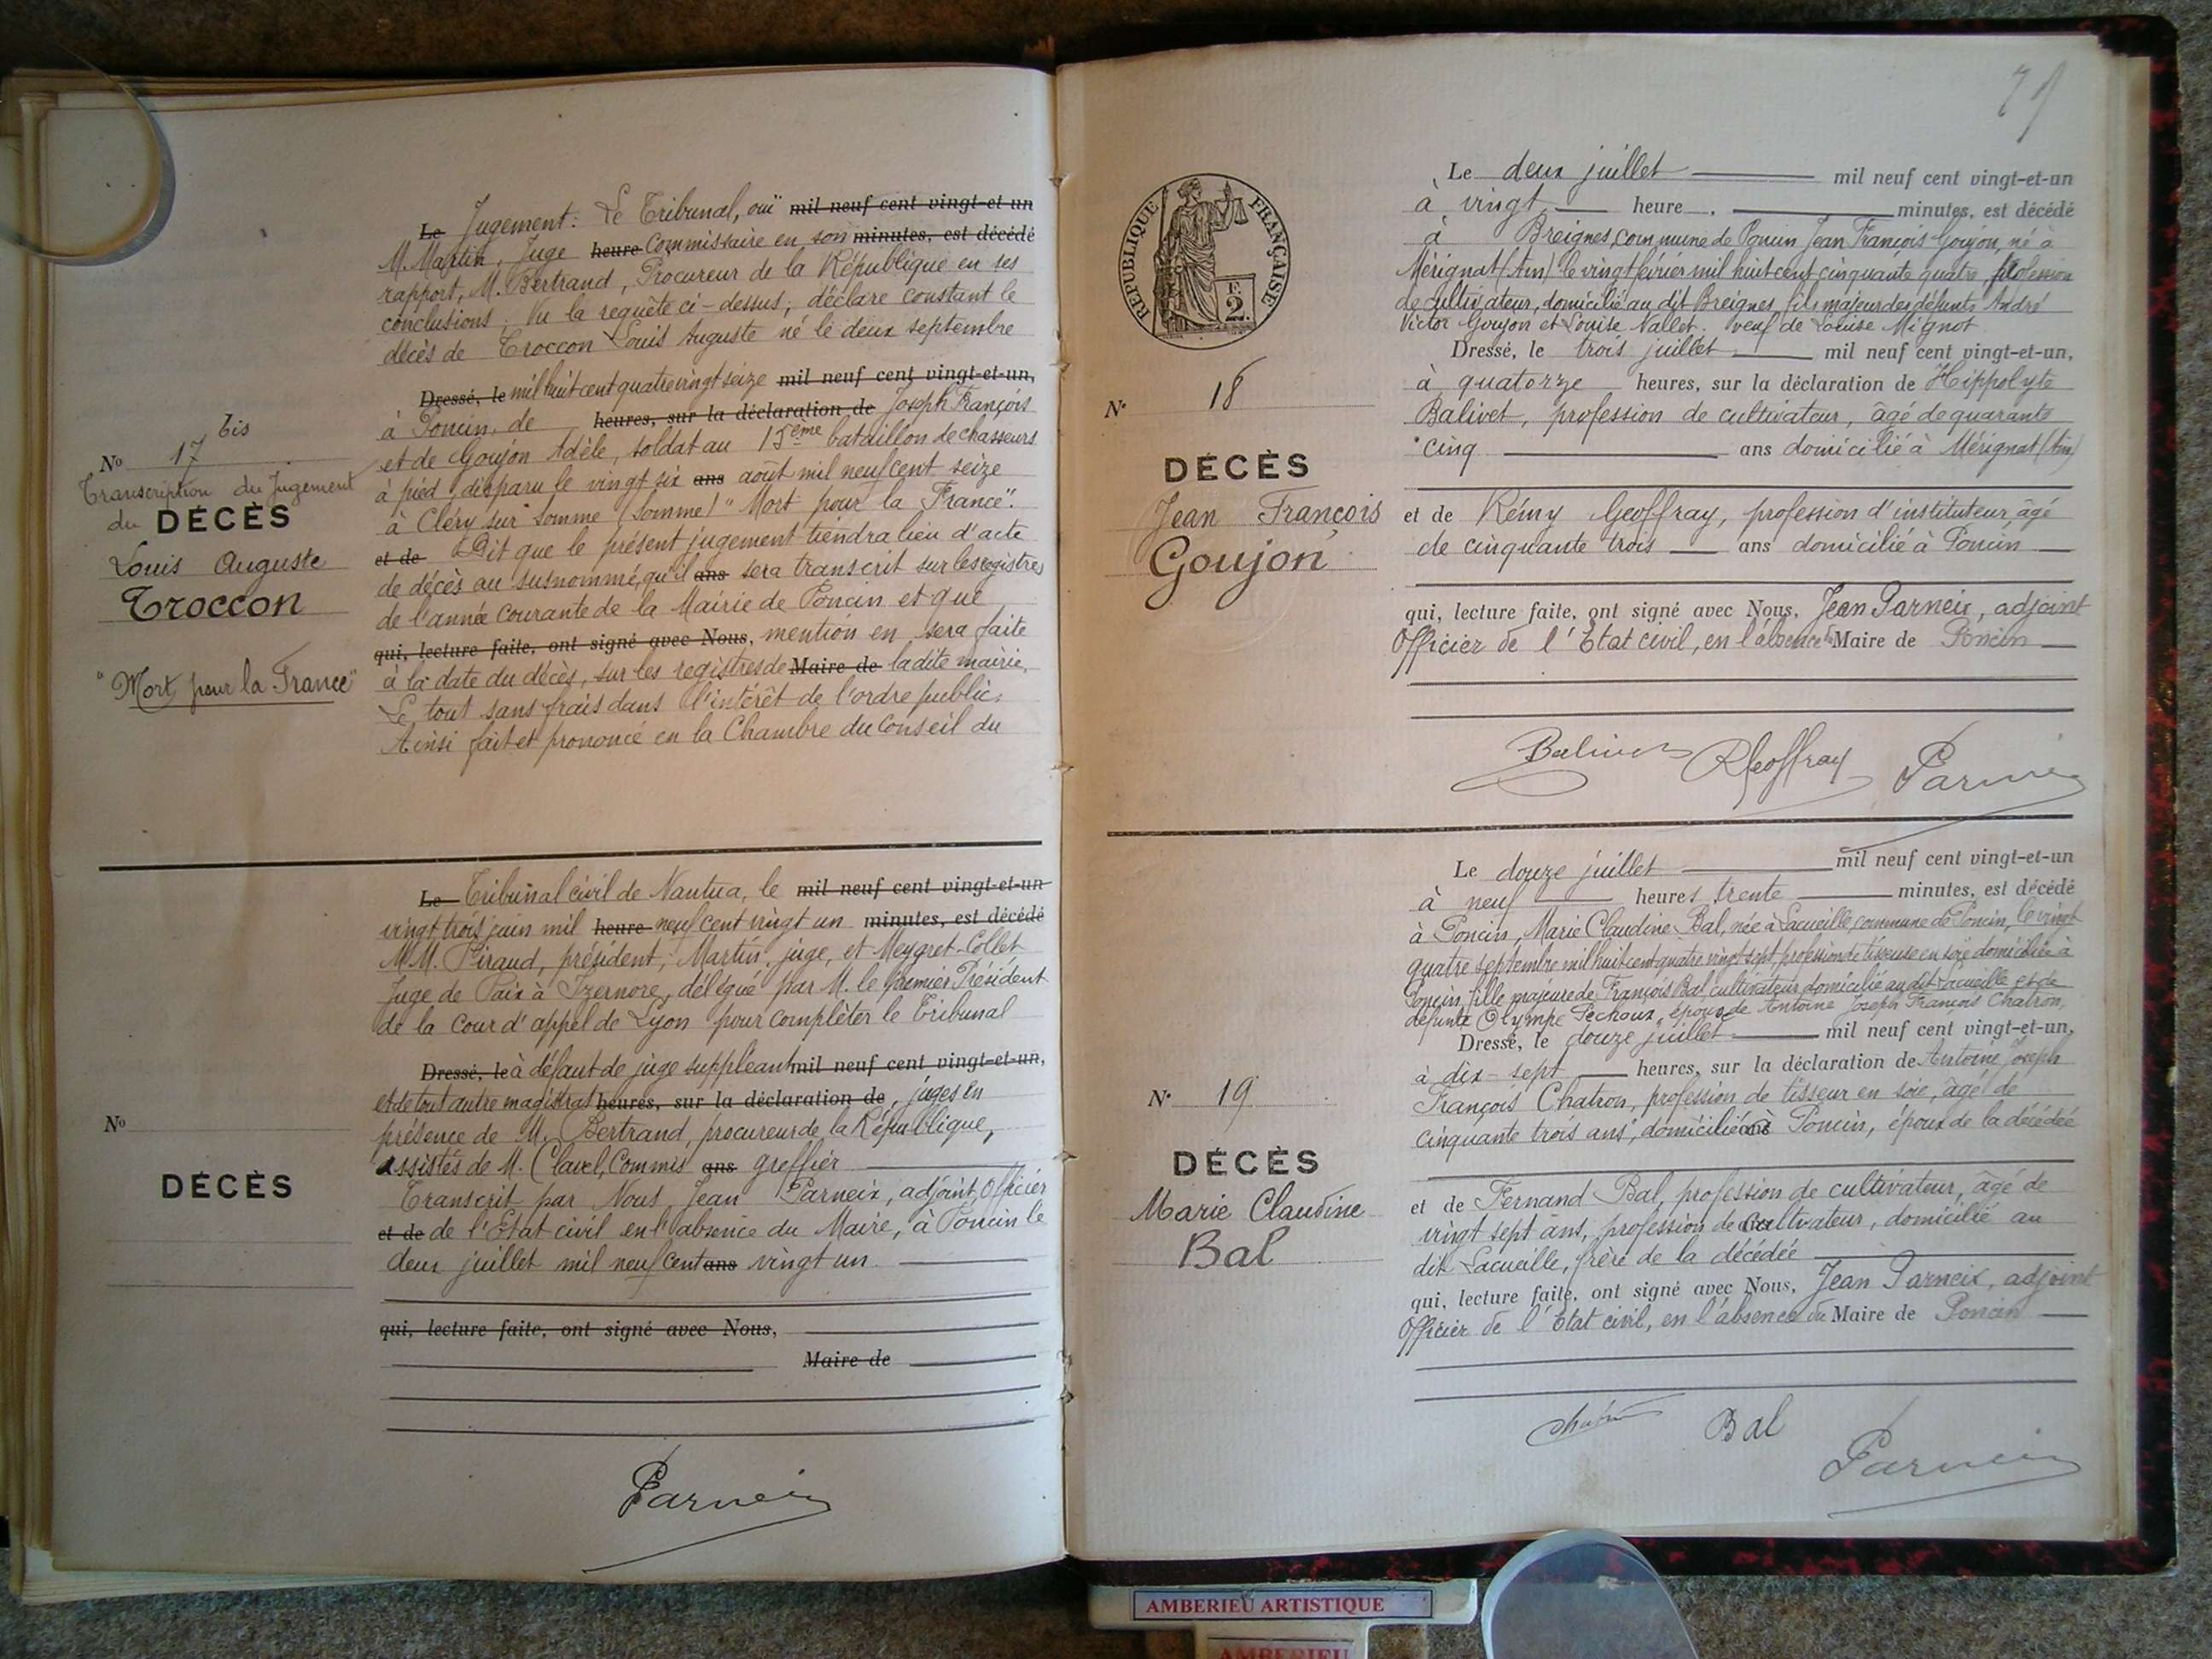 Le Jugement: Le Tribunal, ouï mil neuf cent vingt-et un
M. Martin, Juge heure Commissaire en son minutes, est décédé
rapport, M. Bertrand, Procureur de la République en ses
conclusions. Vu la requête ci-dessus; déclare constant le
décès de Troccon Louis Auguste né le deux septembre
Dressé, le mil huit cent quatre vingt seize mil neuf cent vingt-et-un,
à Poncin, de heures, sur la déclaration de Joseph François
et de Goujon Adèle, soldat au 15ème bataillon de chasseurs
à pied, disparu le vingt six ans août mil neuf cent seize
à Cléry sur Somme (Somme) "Mort pour la France".
et de Dit que le présent jugement tiendra lieu d'acte
de décès au susnommé, qu'il ans sera transcrit sur les registres
de l'année courante de la Mairie de Poncin et que
qui, lecture faite, ont signé avec Nous, mention en sera faite
à la date du décès, sur les registres de Maire de la dite mairie.
Le tout sans frais dans l'intérêt de l'ordre public.
Ainsi fait et prononcé en la Chambre du Conseil du
No 17 bis
Transcription du Jugement
du DÉCÈS
Louis Auguste
Troccon
"Mort pour la France"
Le Tribunal civil de Nantua, le mil neuf cent vingt-et-un
vingt trois juin mil heure neuf cent vingt un minutes, est décédé
MM. Piraud, président, Martin, juge, et Meygret-Collet
Juge de Paix à Izernore, délégué par M. le premier Président
de la Cour d'appel de Lyon pour compléter le Tribunal
Dressé, le à défaut de juge suppléant mil neuf cent vingt-et-un,
et de tout autre magistrat heures, sur la déclaration de, juges en
présence de M. Bertrand, procureur de la République,
assistés de M. Clavel, Commis ans greffier
Transcrit par Nous Jean Parneix, adjoint, Officier
et de de l'Etat civil en l'absence du Maire, à Poncin le
deux juillet mil neuf cent ans vingt un
qui, lecture faite, ont signé avec Nous,
Maire de
No
DÉCÈS
Parneix
79
RÉPUBLIQUE FRANÇAISE
2
Le deux juillet mil neuf cent vingt-et-un
à vingt heure minutes, est décédé
à Breignes, commune de Poncin Jean François Goujon, né à
Mérignat (Ain) le vingt février mil huit cent cinquante quatre, profession
de cultivateur, domicilié au dit Breignes, fils majeur des défunts André
Victor Goujon et Louise Nallet. veuf de Louise Mignot
Dressé, le trois juillet mil neuf cent vingt-et-un,
à quatorze heures, sur la déclaration de Hippolyte
Balivet, profession de cultivateur, âgé de quarante
cinq ans domicilié à Mérignat (Ain)
et de Rémy Geoffray, profession d'instituteur âgé
de cinquante trois ans domicilié à Poncin
qui, lecture faite, ont signé avec Nous, Jean Parneix, adjoint
Officier de l'Etat civil, en l'absence du Maire de Poncin
No 18
DÉCÈS
Jean François
Goujon
Balivet RGeoffray Parneix
Le douze juillet mil neuf cent vingt-et-un
à neuf heures trente minutes, est décédé
à Poncin, Marie Claudine Bal, née à Lacueille, commune de Poncin, le vingt
quatre septembre mil huit cent quatre vingt sept, profession de tisseuse en soie domiciliée à
Poncin, fille majeure de François Bal, cultivateur domicilié au dit Lacueille et de
défunte Olympe Péchoux, épouse de Antoine Joseph François Chatron,
Dressé, le douze juillet mil neuf cent vingt-et-un,
à dix-sept heures, sur la déclaration de Antoine Joseph
François Chatron, profession de tisseur en soie, âgé de
cinquante trois ans, domicilié à Poncin, époux de la décédée
et de Fernand Bal, profession de cultivateur, âgé de
vingt sept ans, profession de cultivateur, domicilié au
dit Lacueille, frère de la décédée
qui, lecture faite, ont signé avec Nous, Jean Parneix, adjoint
Officier de l'Etat civil, en l'absence du Maire de Poncin
No 19
DÉCÈS
Marie Claudine
Bal
Chatron Bal Parneix
AMBERIEU ARTISTIQUE
AMBERIEU